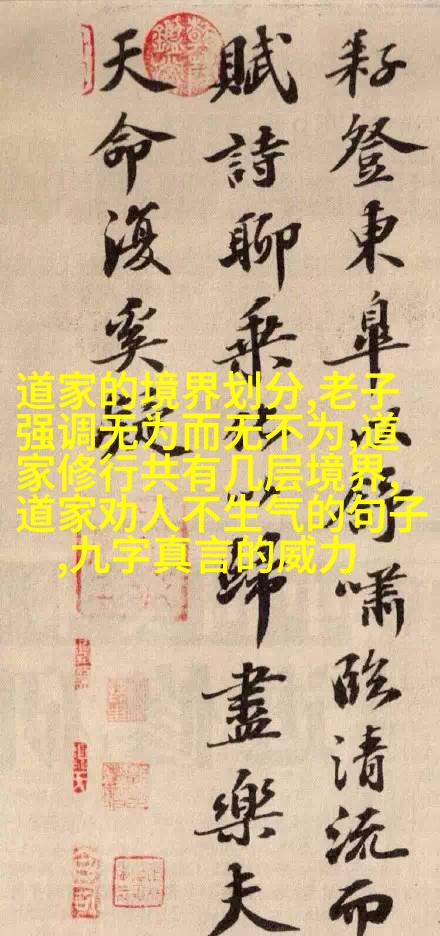 耔登東皋以舒嘯臨清流而
賦詩聊乘化以歸盡樂夫
天命復奚疑
道家的境界划分,老子
强调无为而无不为,道
家修行共有几层境界,
道家劝人不生气的句子
,九字真言的威力